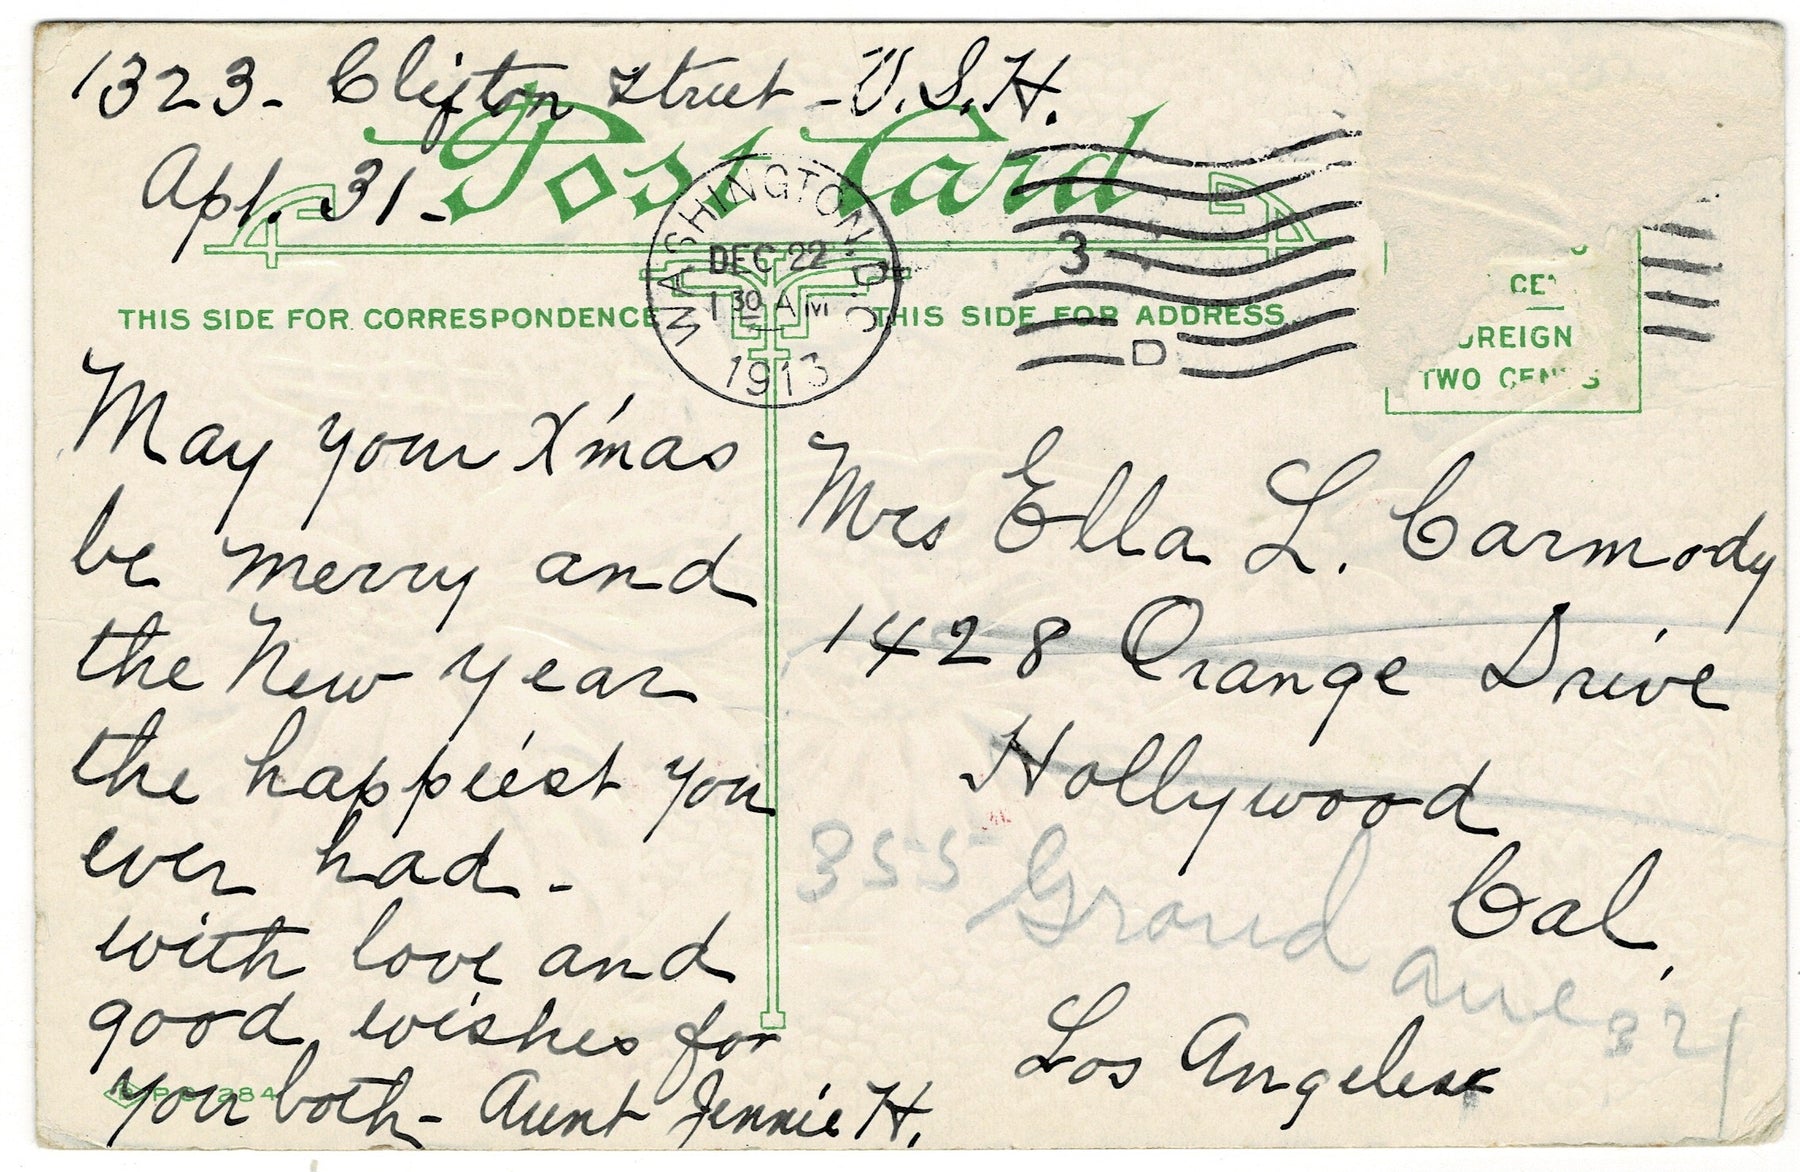 1323- Clifton Street - U.S.H.
Apt. 31-
Post Card
WASHINGTON, D.C.
DEC 22
1 30 A M
1913
3
D
THIS SIDE FOR CORRESPONDENCE
THIS SIDE FOR ADDRESS.
CE
OREIGN
TWO CENTS
May your X'mas
be merry and
the New Year
the happiest you
ever had -
with love and
good wishes for
you both - Aunt Jennie H.
Mrs Ella L. Carmody
1428 Orange Drive
Hollywood
Cal,
Los Angeles
355 Grand ave
321
284